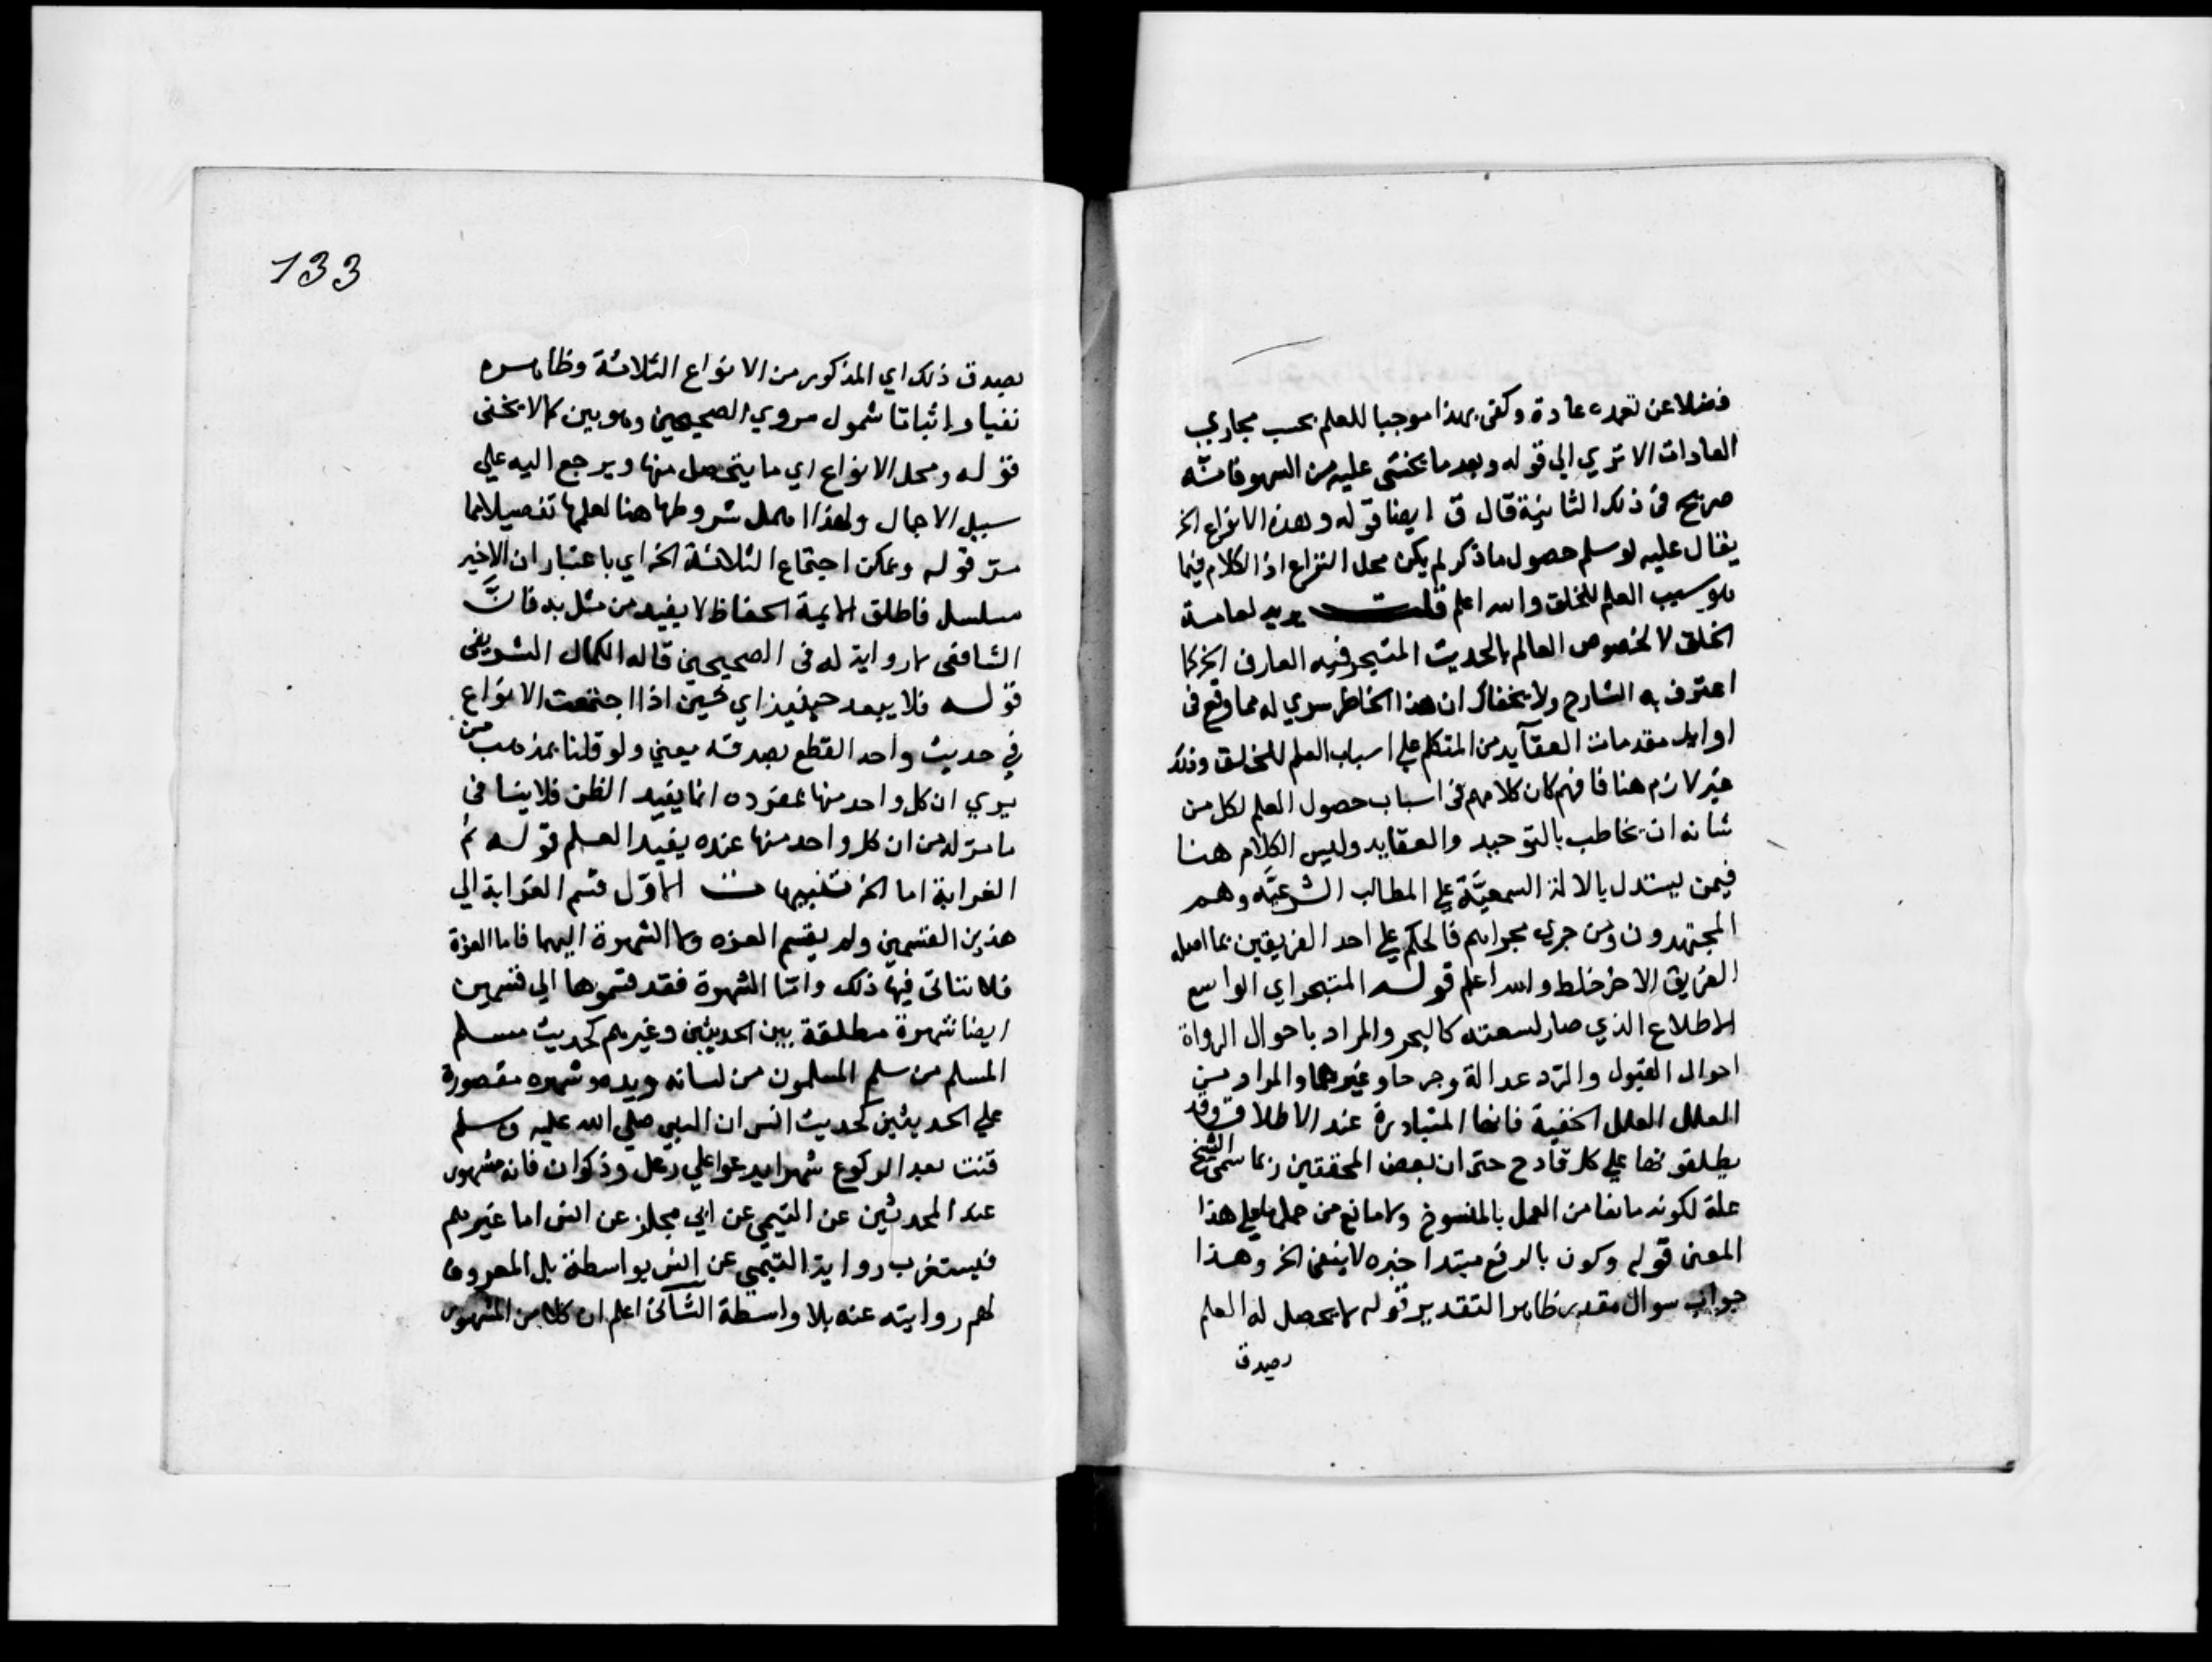 فضلا عن تعمده عادة وكفى بهذا موجبا للعلم بحسب مجاري
العادات الا تري الي قوله وبعد ما يخشى عليه من السهو فانه
صريح في ذلك الثانية قال ق ايضا قوله وهذه الانواع الخ
يقال عليه لو سلم حصول ما ذكر لم يكن محل النزاع اذ الكلام فيما
هو سبب العلم للخلق والله اعلم قلت يريد لعامة
الخلق لا لخصوص العالم بالحديث المتبحر فيه العارف الخ كما
اعترف به الشارح ولا يخفاك ان هذا الخاطر سري له مما وقع في
اوايل مقدمات العقآيد من المتكلم علي اسباب العلم للخلق وذلك
غير لازم هنا فافهم كان كلامهم في اسباب حصول العلم لكل من
شانه ان يخاطب بالتوحيد والعقايد وليس الكلام هنا
فيمن يستدل بالادلة السمعيَّة علي المطالب الشرعيَّه وهم
المجتهدون ومن جري مجراهم فالحكم علي احد الفريقين بما اصله
الفريق الاخر خلط والله اعلم قوله المتبحر اي الواسع
الاطلاع الذي صار لسعته كالبحر والمراد باحوال الرواة
احوال القبول والرد عدالة وجرحا وغيرهما والمراد من
العلل العلل الخفية فانها المتبادرة عند الاطلاق وقد
يطلقونها علي كل قادح حتي ان بعض المحققين ربما سمى النسخ
علة لكونه مانعا من العمل بالمنسوخ ولا مانع من حملها علي هذا
المعنى قوله وكون بالرفع مبتدا خبره لا ينفى الخ وهذا
جواب سوال مقدر ظاهر التقدير قوله لا يحصل له العلم
بصدق
133
بصدق ذلك اي المذكور من الانواع الثلاثة وظاهره
نفيا واثباتا شمول مروي الصحيحين وهو بين كما لا يخفى
قوله ومحل الانواع اي ما يتحصل منها ويرجع اليه علي
سبيل الاجمال ولهذا اهمل شروطها هنا لعلمها تفصيلا مما
مر قوله ويمكن اجتماع الثلاثة الخ اي باعتبار ان الاخير
مسلسل فاطلق الايمة الحفاظ لا يفيد من مثل به فانَّ
الشافعى لا رواية له في الصحيحين قاله الكمال الشريفي
قوله فلا يبعد حينيذ اي لحين اذا اجتمعت الانواع
في حديث واحد القطع بصدقه يعني ولو قلنا بمذهب من
يري ان كل واحد منها بمفرده انما يفيد الظن فلا ينافى
ما مر له من ان كل واحد منها عنده يفيد العلم قوله ثم
الغرابة اما الخ تنبيهات الاوّل قسم الغرابة الي
هذين القسمين ولم يقسم العزه ولا الشهرة اليهما فاما العزة
فلا يتاتى فيها ذلك وامّا الشهرة فقد قسموها الي قسمين
ايضا شهرة مطلقة بين الحديثين وغيرهم كحديث مسلم
المسلم من سلم المسلمون من لسانه ويده وشهره مقصورة
علي الحديثين كحديث انس ان النبي صلي الله عليه وسلم
قنت بعد الركوع شهرا يدعوا علي رعل وذكوان فانه مشهور
عند المحدثين عن التيمي عن ابي مجلز عن انس اما غيرهم
فيستغرب رواية التيمي عن انس بواسطة بل المعروف
لهم روايته عنه بلا واسطة الثآنى اعلم ان كلا من المشهور